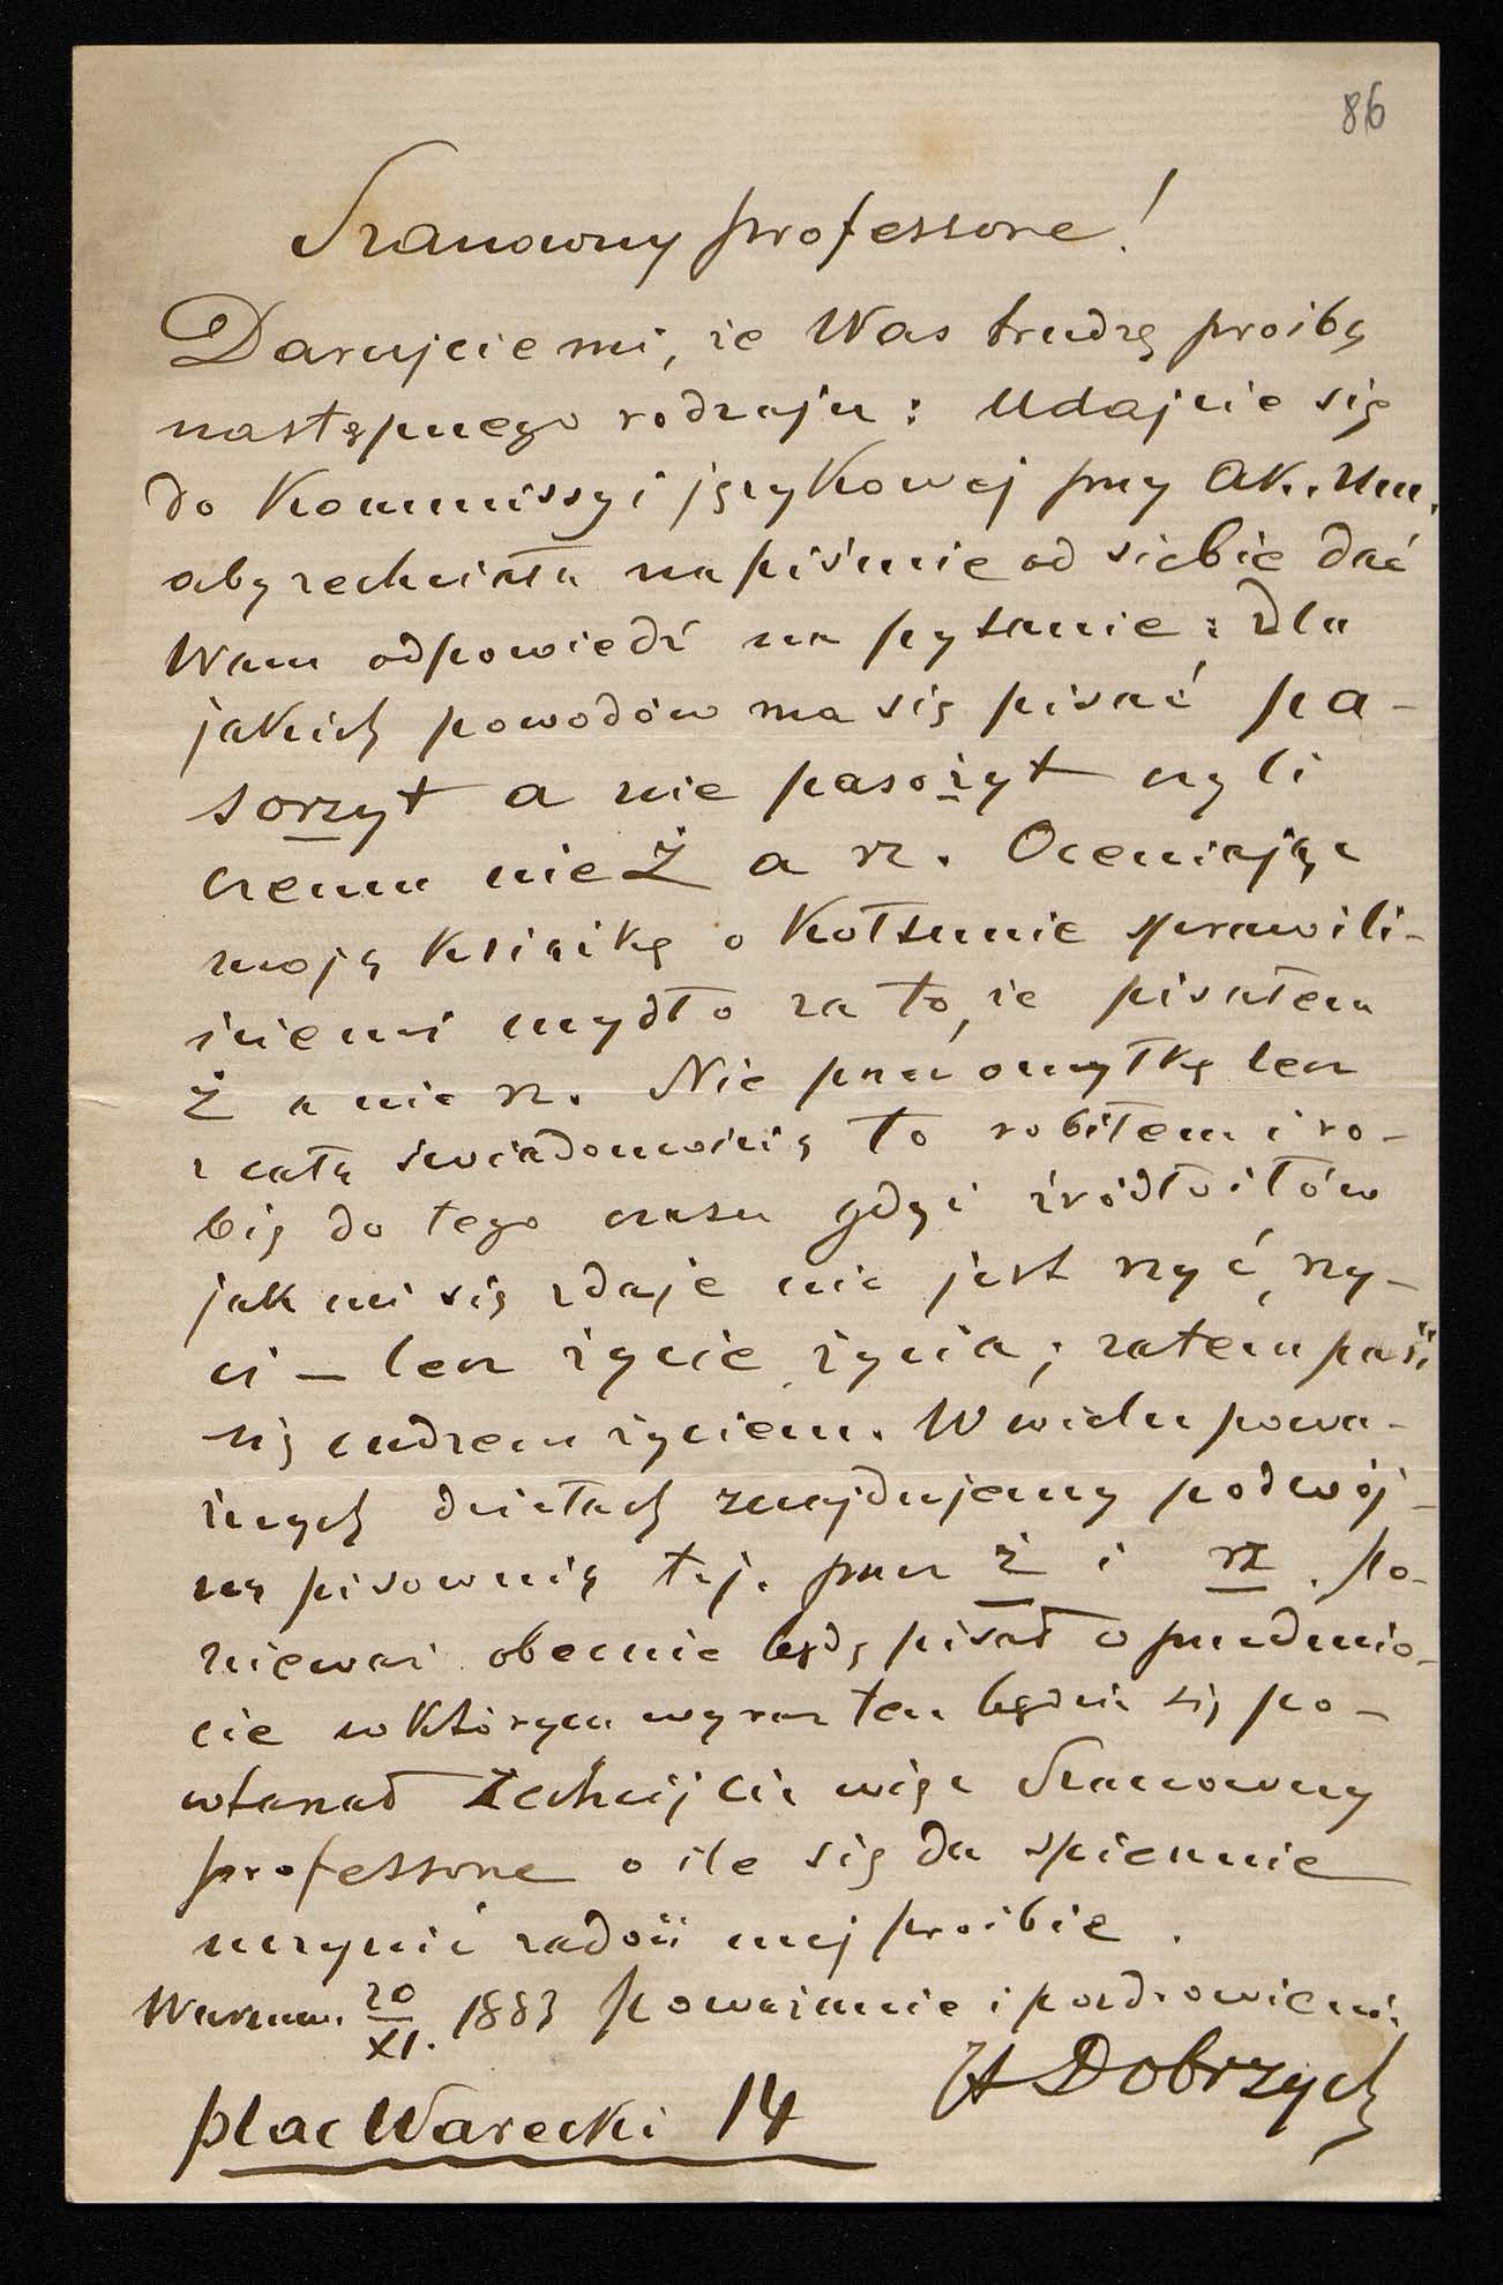 86
Szanowny professorze!
Darujcie mi, że Was trudzę prośbą
następnego rodzaju: Udajcie się
do Kommissyi językowej przy Ak. Um.
aby zechciała na piśmie od siebie dać
Wam odpowiedź na pytanie: dla
jakich powodów ma się pisać pa-
sorzyt a nie pasożyt czyli
czemu nie Ż a rz. Oceniając
moją książkę o Kołtunie sprawili-
ście mi mydło za to, że pisałem
Ż a nie rz. Nie przez omyłkę lecz
z całą świadomością to robiłem i ro-
bię do tego czasu gdyż źródłosłów
jak mi się zdaje nie jest rzyć, rzy-
ci — lecz życie, życia; zatem pasi
się cudzem życiem. W wielu powa-
żnych dziełach znajdujemy podwój-
ną pisownię t.j. przez ż i rz. Po-
nieważ obecnie będę pisał o przedmio-
cie w którym wyraz ten będzie się po-
wtarzał zechciejcie więc Szanowny
professorze o ile się da spiesznie
uczynić zadość mej prośbie.
Warszawa. 20/XI. 1883 Poważanie i pozdrowienie
H Dobrzych
plac Warecki 14